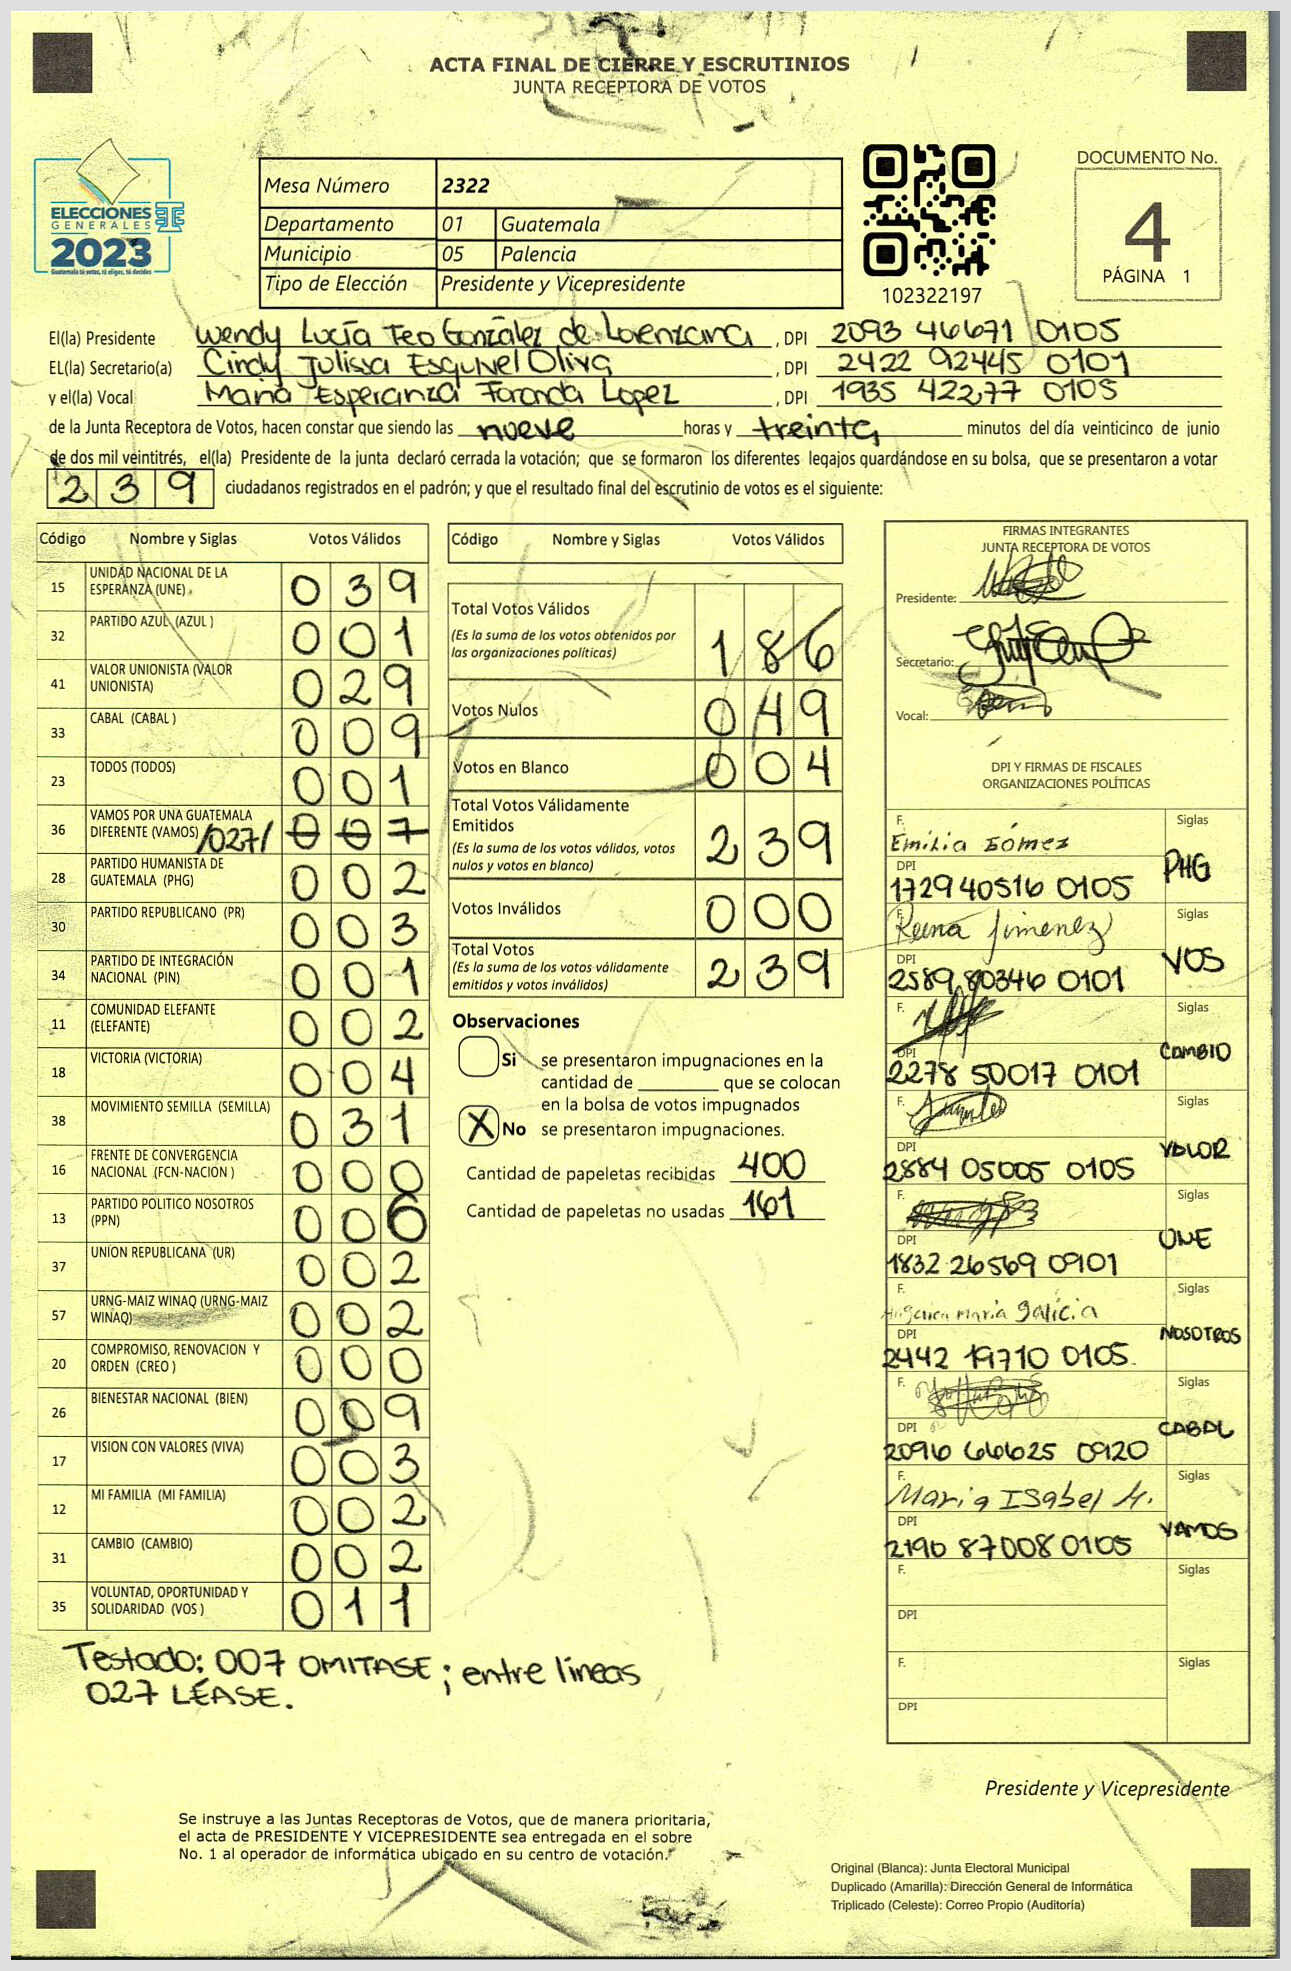 ACTA FINAL DE CIERRE Y ESCRUTINIOS
JUNTA RECEPTORA DE VOTOS
ELECCIONES
GENERALES
2023
Guatemala tú votas, tú eliges, tú decides
Mesa Número 2322
Departamento 01 Guatemala
Municipio 05 Palencia
Tipo de Elección Presidente y Vicepresidente
102322197
DOCUMENTO No.
4
PÁGINA 1
El(la) Presidente Wendy Lucía Teo González de Lorenzana, DPI 2093 46671 0105
EL(la) Secretario(a) Cindy Julissa Esquivel Oliva, DPI 2422 92445 0101
y el(la) Vocal Maria Esperanza Lopez, DPI 1935 42277 0105
de la Junta Receptora de Votos, hacen constar que siendo las nueve horas y treinta minutos del día veinticinco de junio
de dos mil veintitrés, el(la) Presidente de la junta declaró cerrada la votación; que se formaron los diferentes legajos guardándose en su bolsa, que se presentaron a votar
239 ciudadanos registrados en el padrón; y que el resultado final del escrutinio de votos es el siguiente:
Código Nombre y Siglas Votos Válidos
15 UNIDAD NACIONAL DE LA ESPERANZA (UNE) 039
32 PARTIDO AZUL (AZUL ) 001
41 VALOR UNIONISTA (VALOR UNIONISTA) 029
33 CABAL (CABAL ) 009
23 TODOS (TODOS) 001
36 VAMOS POR UNA GUATEMALA DIFERENTE (VAMOS) /027/ 007
28 PARTIDO HUMANISTA DE GUATEMALA (PHG) 002
30 PARTIDO REPUBLICANO (PR) 003
34 PARTIDO DE INTEGRACIÓN NACIONAL (PIN) 001
11 COMUNIDAD ELEFANTE (ELEFANTE) 002
18 VICTORIA (VICTORIA) 004
38 MOVIMIENTO SEMILLA (SEMILLA) 031
16 FRENTE DE CONVERGENCIA NACIONAL (FCN-NACION ) 000
13 PARTIDO POLITICO NOSOTROS (PPN) 006
37 UNION REPUBLICANA (UR) 002
57 URNG-MAIZ WINAQ (URNG-MAIZ WINAQ) 002
20 COMPROMISO, RENOVACION Y ORDEN (CREO ) 000
26 BIENESTAR NACIONAL (BIEN) 009
17 VISION CON VALORES (VIVA) 003
12 MI FAMILIA (MI FAMILIA) 002
31 CAMBIO (CAMBIO) 002
35 VOLUNTAD, OPORTUNIDAD Y SOLIDARIDAD (VOS ) 011
Testado: 007 OMITASE; entre lineas
027 LÉASE.
Código Nombre y Siglas Votos Válidos
Total Votos Válidos 186
(Es la suma de los votos obtenidos por
las organizaciones políticas)
Votos Nulos 049
Votos en Blanco 004
Total Votos Válidamente
Emitidos 239
(Es la suma de los votos válidos, votos
nulos y votos en blanco)
Votos Inválidos 000
Total Votos 239
(Es la suma de los votos válidamente
emitidos y votos inválidos)
Observaciones
Si se presentaron impugnaciones en la
cantidad de ________ que se colocan
en la bolsa de votos impugnados
X No se presentaron impugnaciones.
Cantidad de papeletas recibidas 400
Cantidad de papeletas no usadas 161
FIRMAS INTEGRANTES
JUNTA RECEPTORA DE VOTOS
Presidente:
Secretario:
Vocal:
DPI Y FIRMAS DE FISCALES
ORGANIZACIONES POLÍTICAS
F. Emilia Gómez Siglas
DPI 1729 40516 0105 PHG
F. Reina Jimenez Siglas
DPI 2589 80346 0101 VOS
F. Siglas
DPI 2278 50017 0101 CAMBIO
F. Siglas
DPI 2884 05005 0105 VALOR
F. Siglas
DPI 1832 26569 0901 UNE
F. Angelica Maria Galicia Siglas
DPI 2442 19710 0105 NOSOTROS
F. Siglas
DPI 2096 66625 0920 CABAL
F. Maria ISabel H. Siglas
DPI 2190 87008 0105 VAMOS
F. Siglas
DPI
F. Siglas
DPI
Presidente y Vicepresidente
Se instruye a las Juntas Receptoras de Votos, que de manera prioritaria,
el acta de PRESIDENTE Y VICEPRESIDENTE sea entregada en el sobre
No. 1 al operador de informática ubicado en su centro de votación.
Original (Blanca): Junta Electoral Municipal
Duplicado (Amarilla): Dirección General de Informática
Triplicado (Celeste): Correo Propio (Auditoría)